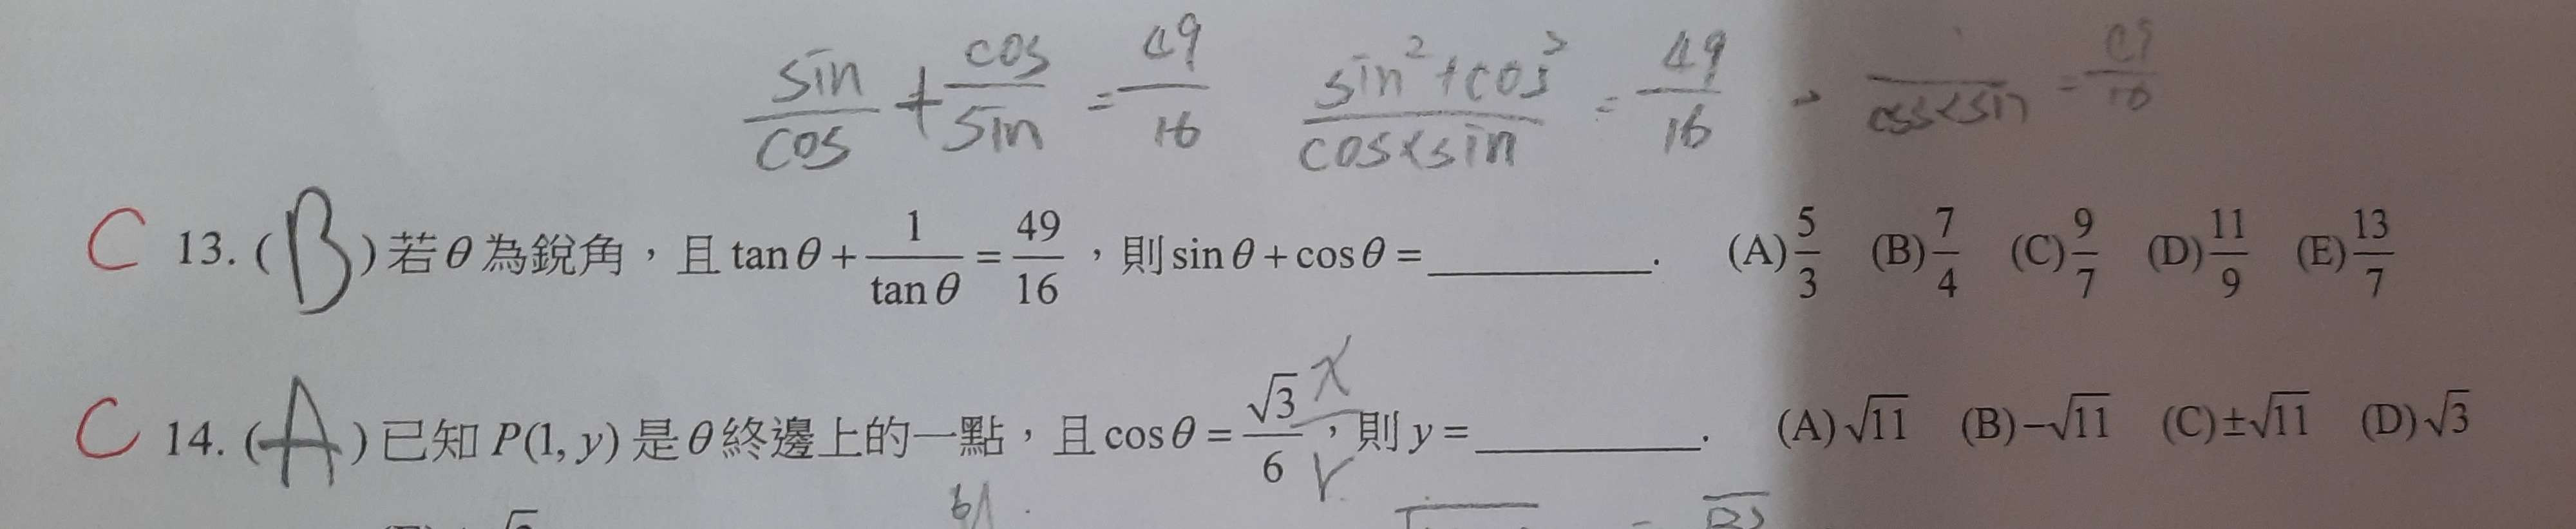 sin/cos + cos/sin = 49/16 sin²+cos²/cos×sin = 49/16 → /cos×sin = /16
C 13. (B) 若θ為銳角，且 tanθ + 1/tanθ = 49/16 ，則 sinθ + cosθ = ________. (A) 5/3 (B) 7/4 (C) 9/7 (D) 11/9 (E) 13/7
C 14. (A) 已知 P(1, y) 是θ終邊上的一點，且 cosθ = √3/6 x/r ，則 y = ________. (A) √11 (B) −√11 (C) ±√11 (D) √3